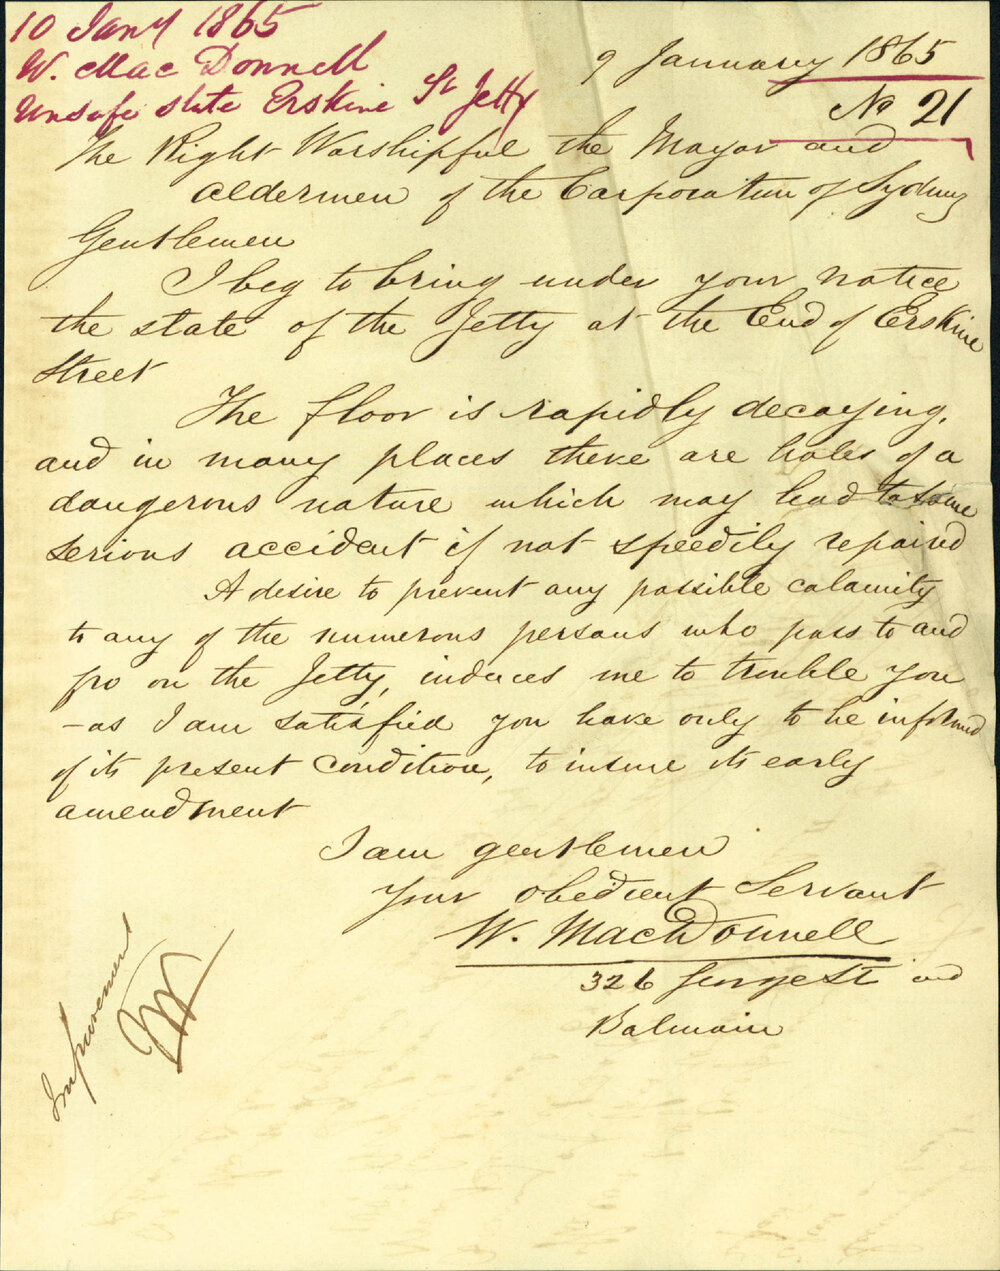 10 Jany 1865
W. Mac Donnell
Unsafe state Erskine St Jetty
9 January 1865
No 21
The Right Worshipful the Mayor and
Aldermen of the Corporation of Sydney
Gentlemen
I beg to bring under your notice
the state of the Jetty at the End of Erskine
Street
The floor is rapidly decaying,
and in many places there are holes of a
dangerous nature which may lead to some
serious accident if not speedily repaired
A desire to prevent any possible calamity
to any of the numerous persons who pass to and
fro on the Jetty, induces me to trouble you
- as I am satisfied you have only to be informed
of its present condition, to insure its early
amendment
I am gentlemen
Your obedient Servant
W. MacDonnell
326 George St and
Balmain
Improvement